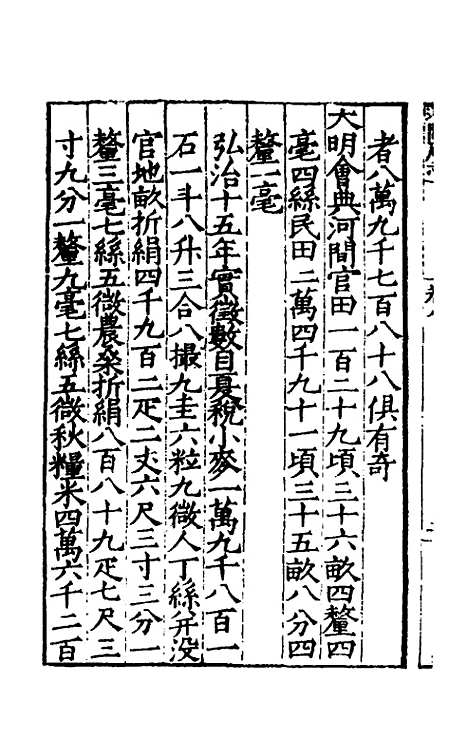 者八萬九千七百八十八俱有奇
大明會典河間官田一百二十九頃三十六畝四釐四
毫四絲民田二萬四千九十一頃三十五畝八分四
釐一毫
弘治十五年實徵數目夏稅小麥一萬九千八百一
石一斗八升三合八撮九圭六粒九微人丁絲并没
官地畝折絹四千九百二疋二丈六尺三寸三分一
釐三毫七絲五微農桑折絹八百八十九疋七尺三
寸九分一釐九毫七絲五微秋糧米四萬六千二百